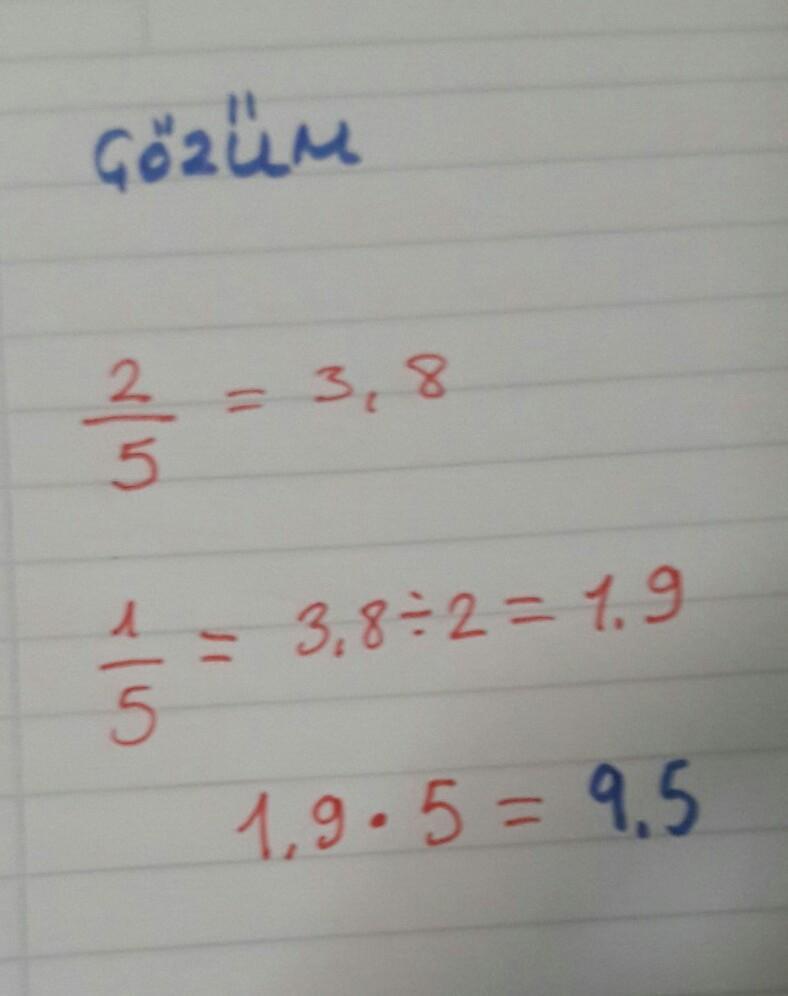 ÇÖZÜM
2/5 = 3,8
1/5 = 3,8÷2 = 1.9
1,9 · 5 = 9.5